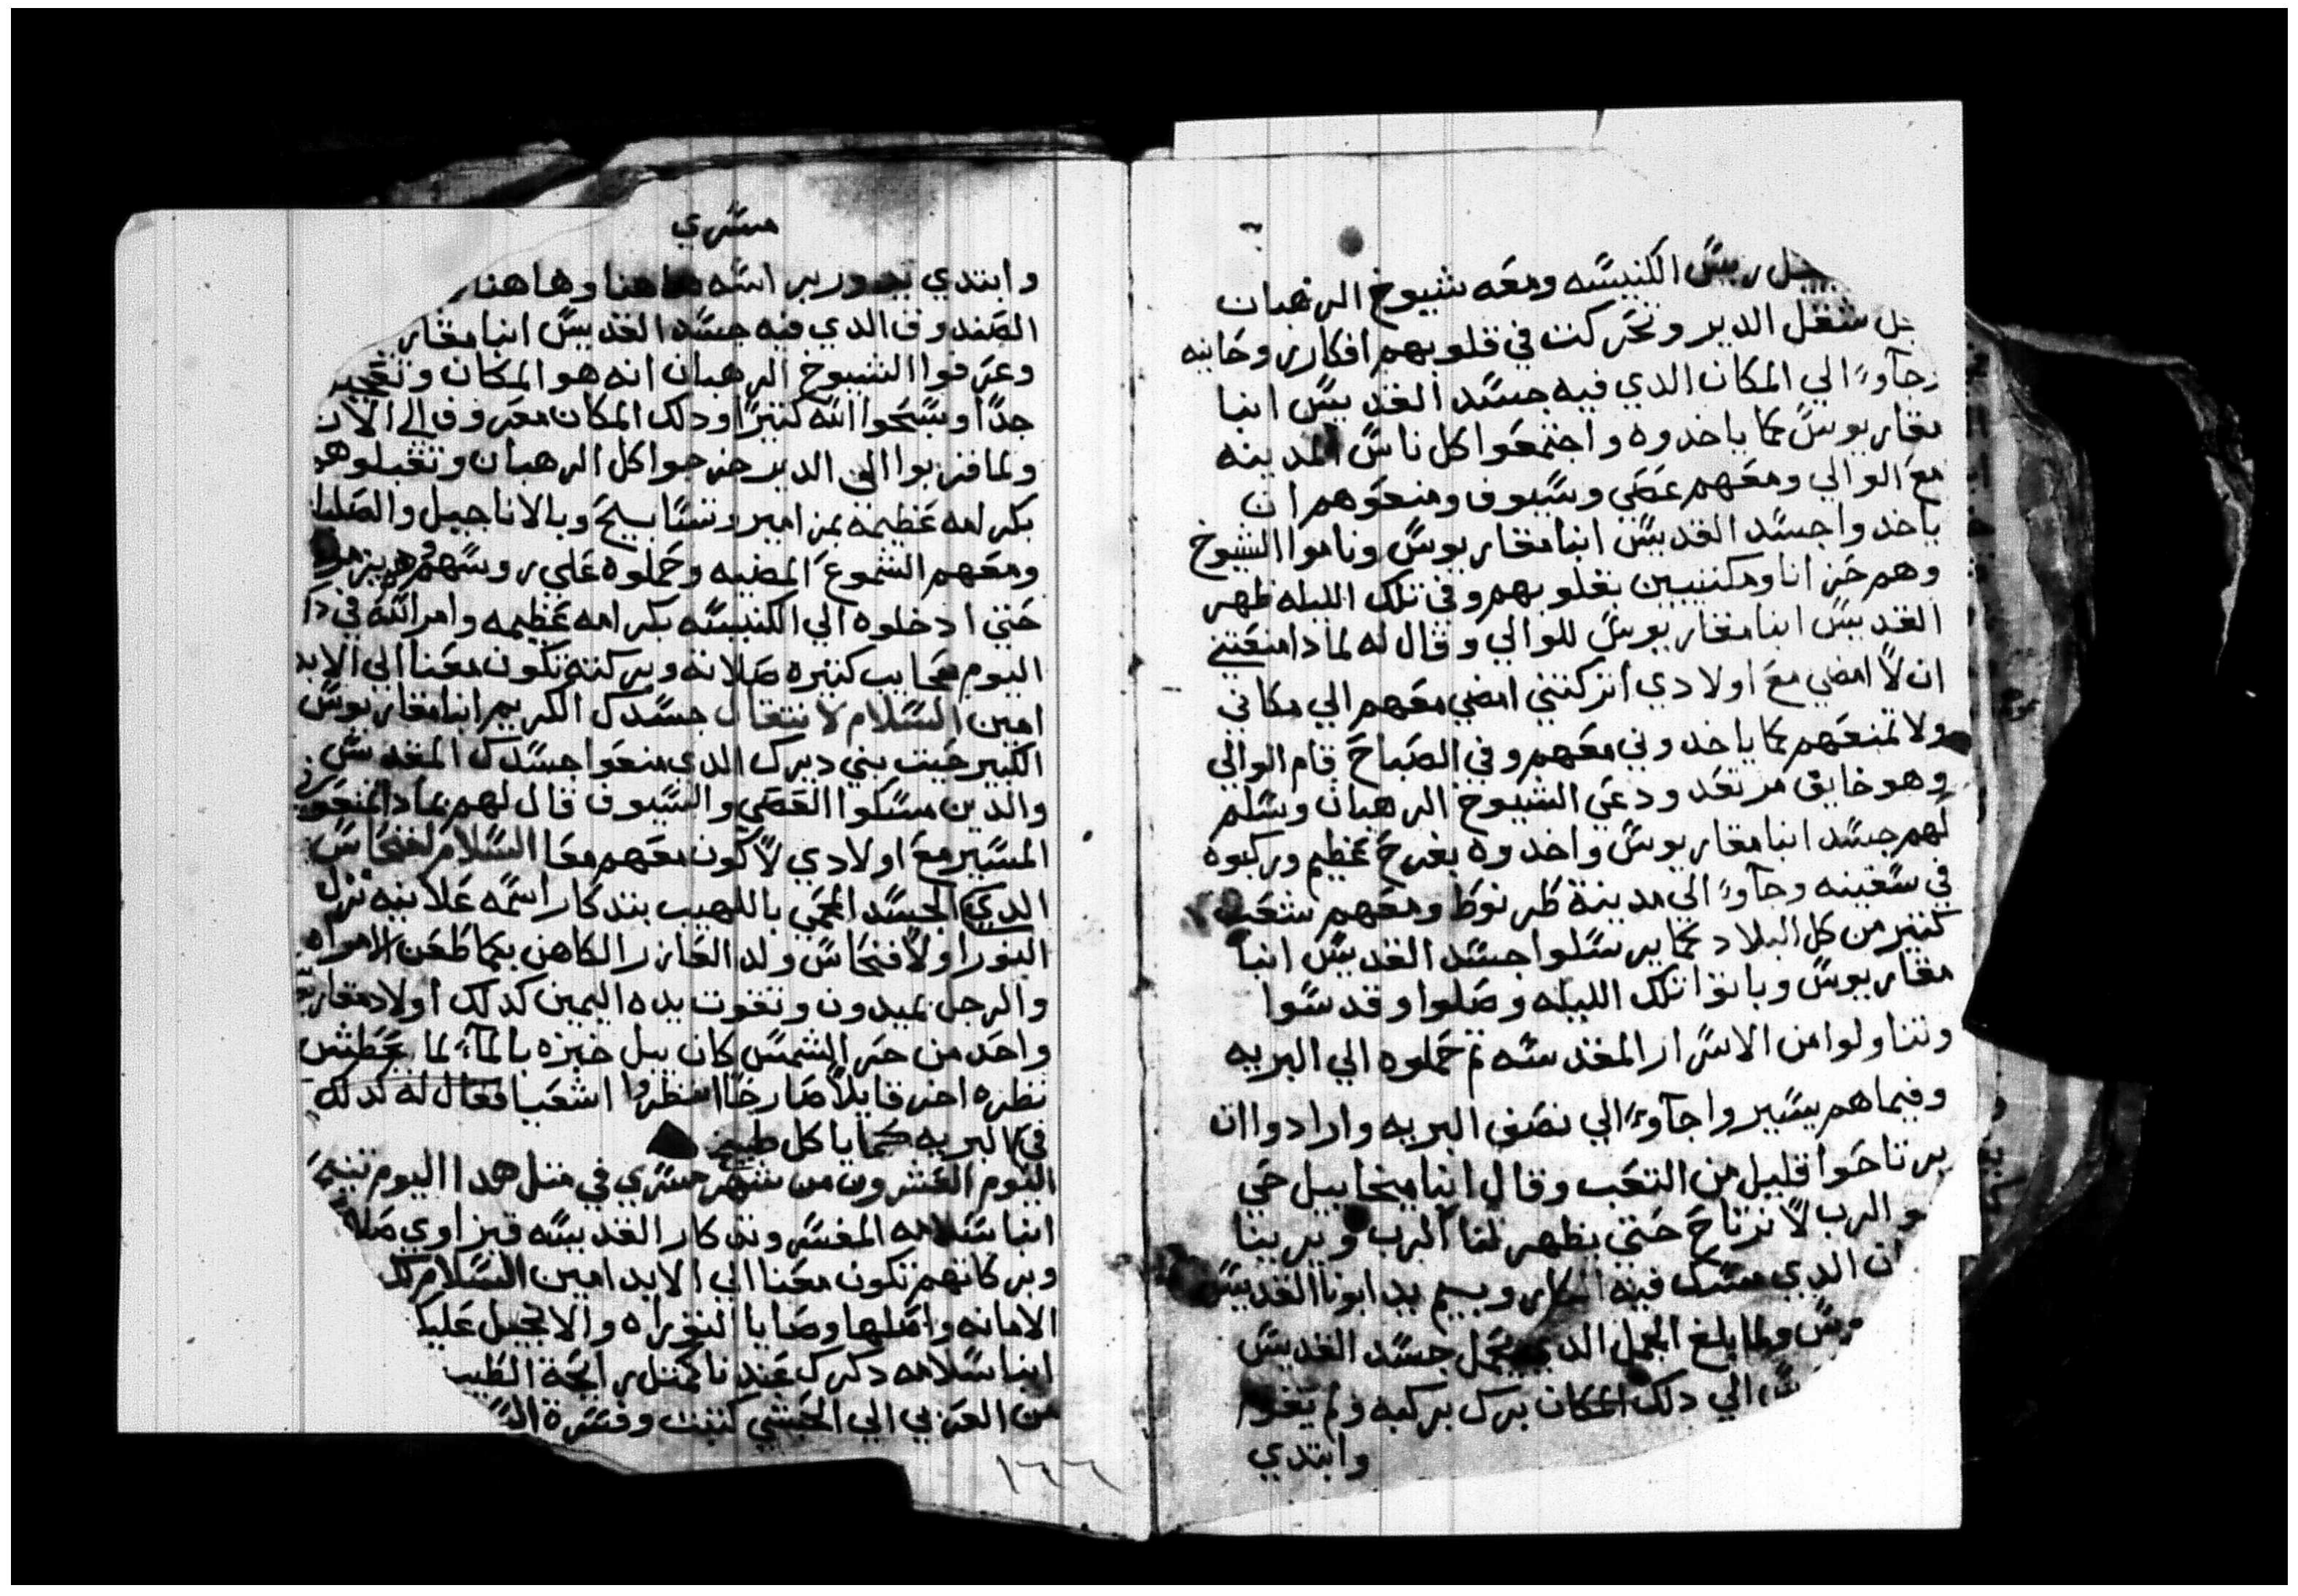 ريس الكنيسه ومعه شيوخ الرهبان
شغل الدير وتحركت في قلوبهم افكار روحانيه
وجآوء الي المكان الدي فيه جسد القديس انبا
مقاريوس كما ياخدوه واجتمعوا كل ناس المدينه
مع الوالي ومعهم عصي وسيوف ومنعوهم ان
ياخدوا جسد القديس انبا مقاريوس وناموا الشيوخ
وهم حزانا ومكتيبين بقلوبهم وفي تلك الليله ظهر
القديس انبا مقاريوس للوالي وقال له لمادا منعتني
ان لا امضي مع اولادي اتركنني امضي معهم الي مكاني
ولا تمنعهم كما ياخدوني معهم وفي الصباح قام الوالي
وهو خايق مرتعد ودعي الشيوخ الرهبان وسلم
لهم جسد انبا مقاريوس واخدوه بفرح عظيم وركبوه
في سفينه وجآوء الي مدينة طرنوط ومعهم شعب
كتير من كل البلاد كما يرسلوا جسد القديس انبا
مقاريوس وباتوا تلك الليله وصلوا وقدسوا
وتناولوا من الاسرار المقدسه تم حملوه الي البريه
وفيما هم يسيروا جآوء الي نصف البريه وارادوا ان
يرتاحوا قليل من التعب وقال انبا ميخاييل حي
هو الرب لا نرتاح حتي يظهر لنا الرب ويرينا
الدي مسك فيه ويسم يد ابونا القديس
ولما بلغ الجمل الدي يحمل جسد القديس
الي دلك المكان برك بركبه ولم يقوم
وابتدي
مسري
وابتدي يدور براسه هاهنا وهاهنا
الصندوق الدي فيه جسد القديس انبا مقار
وعرفوا الشيوخ الرهبان انه هو المكان وتعجبو
جدا وسبحوا الله كتيرا ودلك المكان معروف الي الان
ولما قربوا الي الدير خرجوا كل الرهبان وتقبلوهم
بكرامه عظيمه بمزامير وتسابيح وبالاناجيل والصلبا
ومعهم الشموع المضيه وحملوه علي روسهم وهم يزمرو
حتي ادخلوه الي الكنيسه بكرامه عظيمه وامر الله في دا
اليوم عجايب كتيره صلاته وبركته تكون معنا الي الابد
امين السلام لانتقال جسدك الكريم انبا مقاريوس
الكبير حيت بني ديرك الدي منعوا جسدك المقدس
والدين مسكوا العصي والسيوف قال لهم لمادا تمنعو
المسير مع اولادي لاكون معهم معا السلام لفنحاس
الدي الجسد المحمي باللهيب بتدكار اسمه علانيه نزل
النور اولا فنحاس ولد العازر الكاهن بكما طعن الامراه
والرجل بميدون وتقوت يده اليمين كدلك اولاد مقاريو
واحد من حر الشمس كان يبل خبزه بالمآء لما عطش
نظره اخر قايلا صارخا انظروا اشعيا فقال له لدلك
في البريه كما ياكل طبيخ
اليوم العشرون من شهر مسري في متل هدا اليوم تنيح
انبا سلامه المفسر وتدكار القديسه قيزاوي صلا
وبركاتهم تكون معنا الي الابد امين السلام لك
الامانه واصلها وصايا التوراه والانجيل عليك
انبا سلامه دكرك عندنا كمتل رايحة الطيب
من العربي الي الحبشي كتبت وفسرة
١٦٦